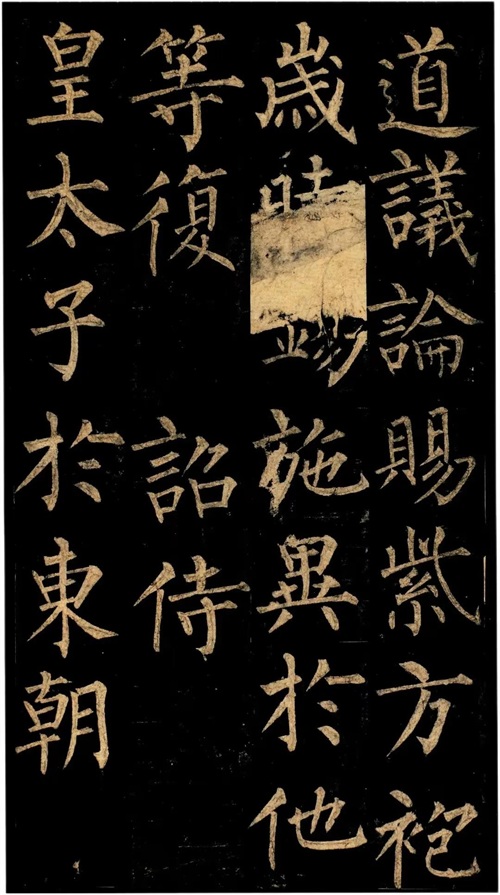 道議論賜紫方袍
歲時錫施異於他
等復 詔侍
皇太子於東朝